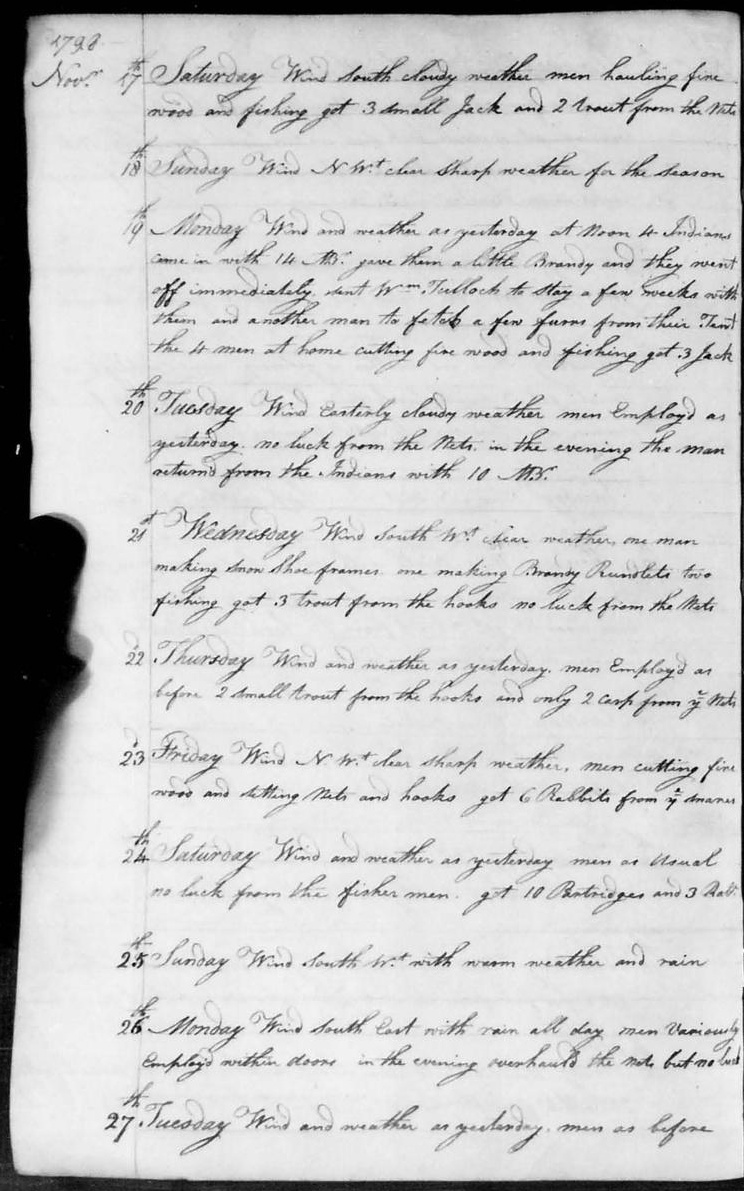 1798
Novr 17th Saturday Wind South cloudy weather men hauling fire
wood and fishing got 3 small Jack and 2 trout from the Nets
18th Sunday Wind N Wt clear sharp weather for the season
19th Monday Wind and weather as yesterday at Noon 4 Indians
came in with 14 MBr gave them a little Brandy and they went
off immediately sent Wm Tulloch to stay a few weeks with
them and another man to fetch a few furrs from their Tent
the 4 men at home cutting fire wood and fishing got 3 Jack
20th Tuesday Wind Easterly cloudy weather men Employd as
yesterday. no luck from the Nets. in the evening the man
returnd from the Indians with 10 MBr.
21st Wednesday Wind South Wt clear weather, one man
making snow Shoe frames one making Brandy Runlets two
fishing got 3 trout from the hooks no luck from the Nets
22 Thursday Wind and weather as yesterday. men Employd as
before 2 small trout from the hooks and only 2 carp from ye Nets
23 Friday Wind N. Wt clear sharp weather, men cutting fire
wood and setting Nets and hooks got 6 Rabbits from ye snares
24th Saturday Wind and weather as yesterday men as Usual
no luck from the fisher men. got 10 Partridges and 3 Rabt
25th Sunday Wind South Wt with warm weather and rain
26th Monday Wind South East with rain all day men Variously
Employd within doors in the evening overhauld the nets but no luck
27th Tuesday Wind and weather as yesterday. men as before